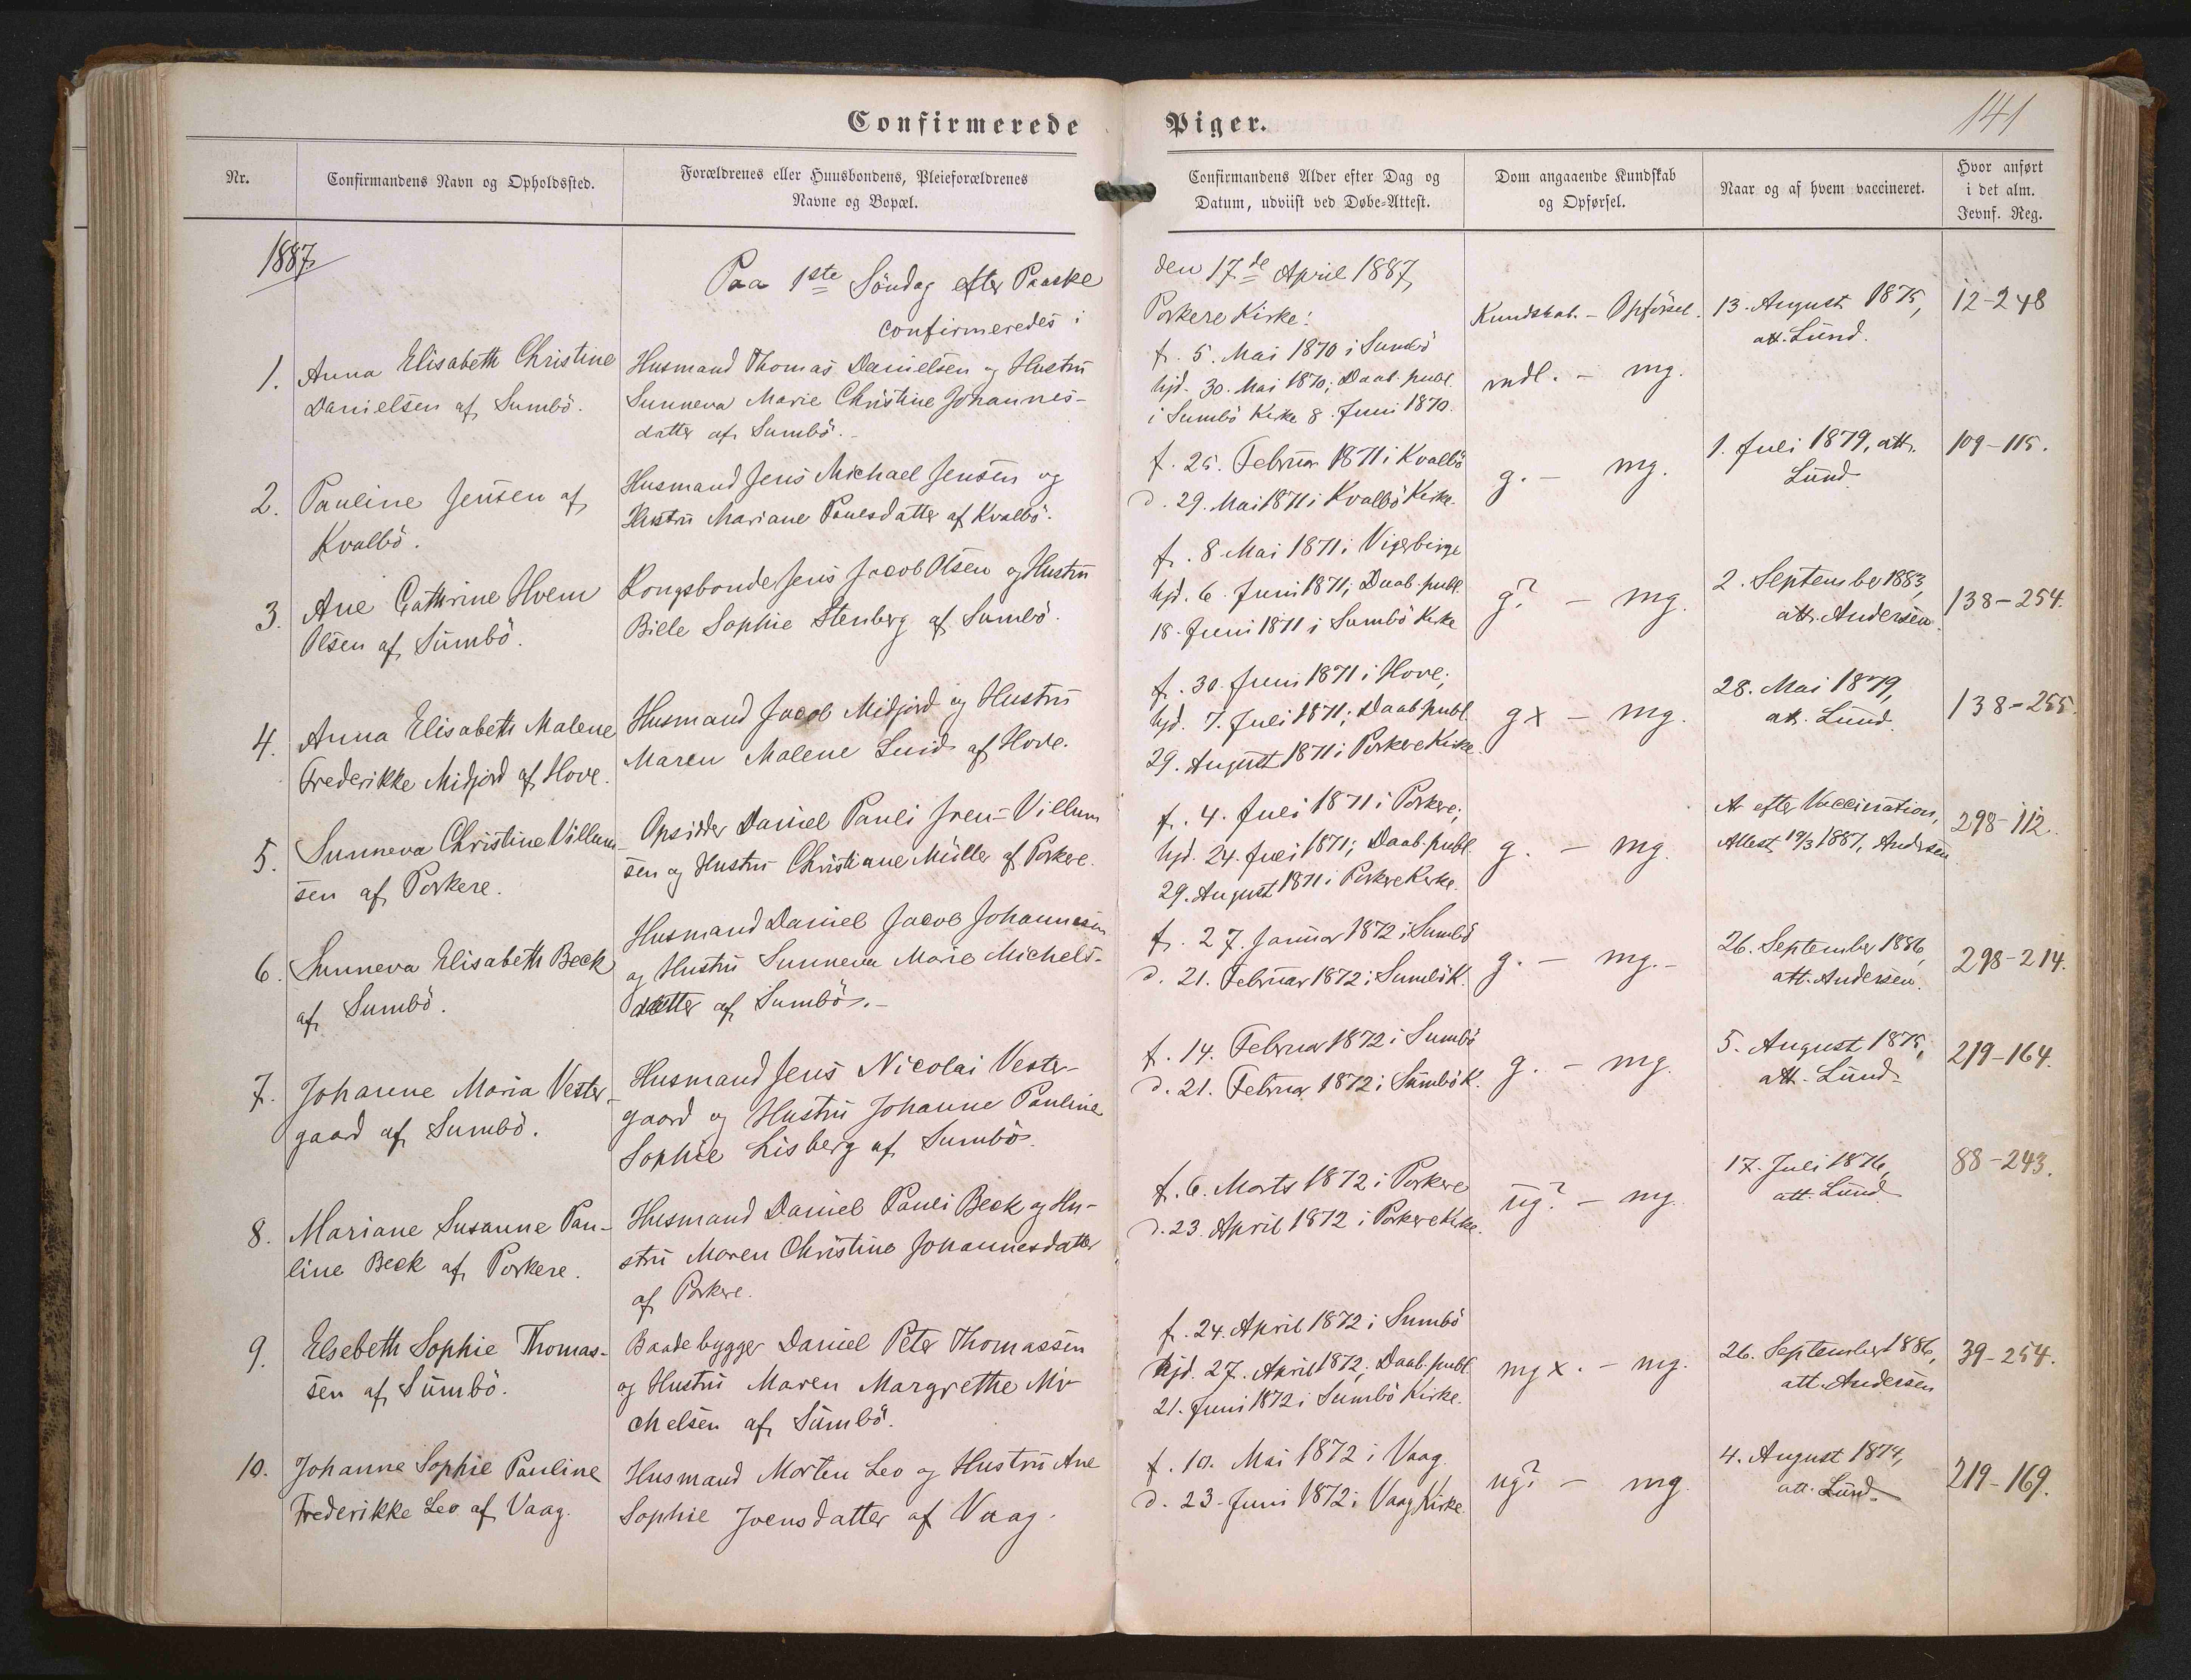 Confirmerede Piger.
141
Nr.
Confirmandens Navn og Opholdssted.
Forældrenes eller Huusbondens, Pleieforældrenes
Navne og Bopæl.
Confirmandens Alder efter Dag og
Datum, udviist ved Døbe-Attest.
Dom angaaende Kundskab
og Opførsel.
Naar og af hvem vaccineret.
Hvor anført
i det alm.
Jevnf. Reg.
1887
Paa 1ste Söndag efter Paaske
confirmeredes i
den 17de April 1887
Porkere Kirke:
Kundskab. - Opförsel.
1.
Anna Elisabeth Christine
Danielsen af Sumbö.
Husmand Thomas Danielsen og Hustru
Sunneva Marie Christine Johannes-
datter af Sumbö.-
f. 5. Mai 1870 i Sumbö
hjd. 30. Mai 1870; Daab publ.
i Sumbö Kirke 8. Juni 1870.
mdl. - mg.
13. August 1875,
att. Lund.
12-248
2.
Pauline Jensen af
Kvalbö.
Husmand Jens Michael Jensen og
Hustru Mariane Poulsdatter af Kvalbö.
f. 25. Februar 1871 i Kvalbö
d. 29. Mai 1871 i Kvalbö Kirke.
g. - mg.
1. Juli 1879, att.
Lund
109-115.
3.
Ane Cathrine Hvem
Olsen af Sumbö.
Kongsbonde Jens Jacob Olsen og Hustru
Bille Sophie Stenberg af Sumbö.
f. 8 Mai 1871 i Vigerbirge
hjd. 6. Juni 1871; Daab publ.
18. Juni 1871 i Sumbö Kirke
g? - mg.
2. September 1883,
att. Andersen.
138-254.
4.
Anna Elisabeth Malene
Frederikke Midjord af Hove.
Husmand Jacob Midjord og Hustru
Maren Malene Luid af Hove.
f. 30. Juni 1871 i Hove;
hjd. 7. Juli 1871; Daab publ.
29. August 1871 i Porkere Kirke.
g x - mg.
28. Mai 1879,
att. Lund.
138-255.
5.
Sunneva Christine Villum-
sen af Porkere.
Opsidder Daniel Pauli Joen-Villum
sen og Hustru Christiane Müller af Porkere.
f. 4. Juli 1871 i Porkere;
hjd. 24. Juli 1871; Daab publ.
29. August 1871 i Porkere Kirke.
g. - mg.
efter Vaccination,
Attest 19/3 1887, Andersen
298-112.
6.
Sunneva Elisabeth Beck
af Sumbö.
Husmand Daniel Jacob Johannesen
og Hustru Sunneva Marie Michels-
datter af Sumbö.-
f. 27. Januar 1872 i Sumbö
d. 21. Februar 1872 i Sumbö K.
g. - mg.-
26. September 1886,
att. Andersen.
298-214.
7.
Johanne Maria Vester-
gaard af Sumbö.
Husmand Jens Nicolai Vester-
gaard og Hustru Johanne Pauline
Sophie Lisberg af Sumbö.
f. 14. Februar 1872 i Sumbö
d. 21. Februar 1872 i Sumbö K.
g. - mg.
5. August 1875,
att. Lund.
219-164.
8.
Mariane Susanne Pau-
line Beck af Porkere.
Husmand Daniel Pauli Beck og Hu-
stru Maren Christine Johannesdatter
af Porkere.
f. 6. Marts 1872 i Porkere
d. 23. April 1872 i Porkere Kirke.
ug? - mg.
17. Juli 1876,
att. Lund
88-243.
9.
Elsebeth Sophie Thomas-
sen af Sumbö.
Baadebygger Daniel Peter Thomassen
og Hustru Maren Margrethe Mi-
chelsen af Sumbö.
f. 24. April 1872 i Sumbö
hjd. 27. April 1872; Daab publ.
21. Juni 1872 i Sumbö Kirke.
mg x. - mg.
26. September 1886,
att. Andersen
39-254.
10.
Johanne Sophie Pauline
Frederikke Leo af Vaag.
Husmand Morten Leo og Hustru Ane
Sophie Joensdatter af Vaag.
f. 10. Mai 1872 i Vaag.
d. 23. Juni 1872 i Vaag Kirke.
ug? - mg.
4. August 1874,
att. Lund.
219-169.